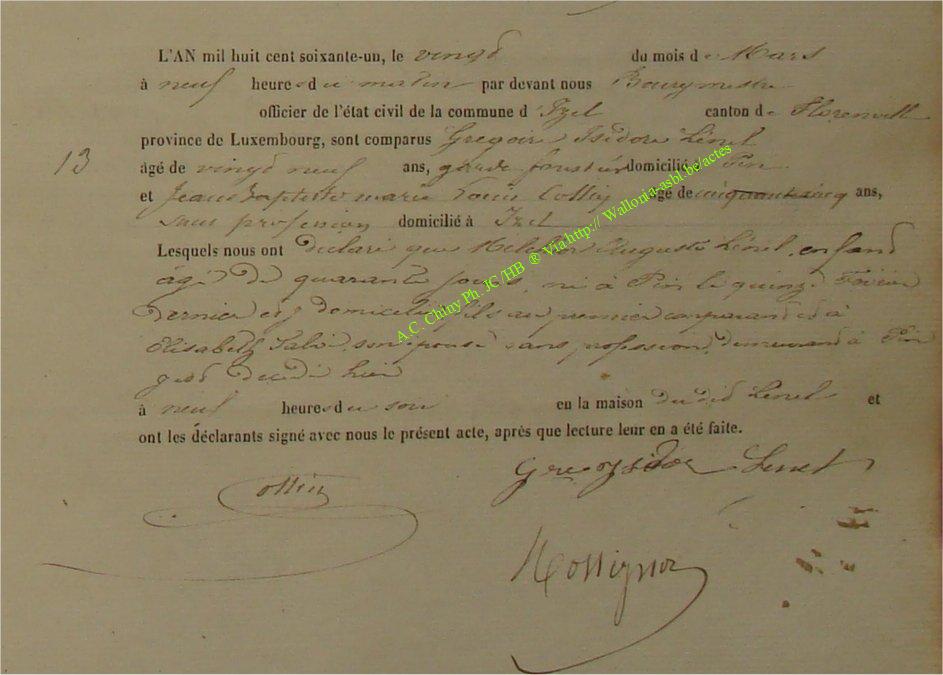 L'AN mil huit cent soixante-un, le vingt du mois de Mars
à neuf heures du matin par devant nous Bourgmestre
officier de l'état civil de la commune d'Izel canton de Florenville
province de Luxembourg, sont comparus Gregoire Isidore Lénel
13
âgé de vingt neuf ans, garde forestier domicilié à Pin
et Jean Baptiste marie Louis Collin âgé de cinquante cinq ans,
sans profession domicilié à Izel
Lesquels nous ont déclaré que Auguste Lénel, enfant
âgé de quarante jours, né à Pin le quinze Février
dernier et y domicilié, fils au premier comparant et à
Elisabeth son épouse sans profession, demeurant à Pin
est décédé hier
à neuf heures du soir en la maison dudit Lénel et
ont les déclarants signé avec nous le présent acte, après que lecture leur en a été faite.
Collin
Lenel
A.C. Chiny Ph. JC/HB ® Via http:// Wallonia-asbl.be/actes